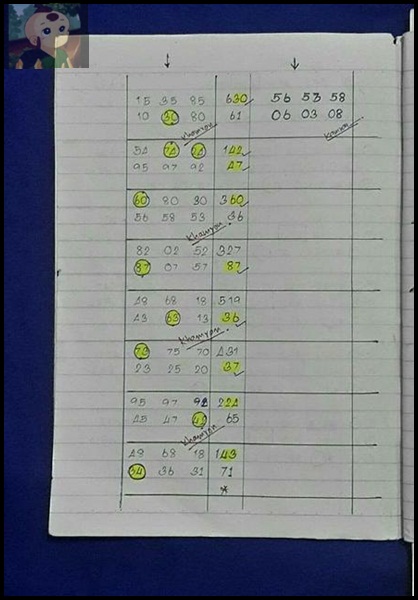 15 35 85 630 56 53 58
10 30 80 61 06 03 08
Khamron
54 74 24 142
95 97 92 47
60 80 30 360
56 58 53 36
Khamron
82 02 52 327
87 07 57 87
48 68 18 519
43 63 13 36
Khamron
73 75 70 431
23 25 20 37
95 97 92 224
45 47 42 65
Khamron
48 68 18 143
34 36 31 71
*